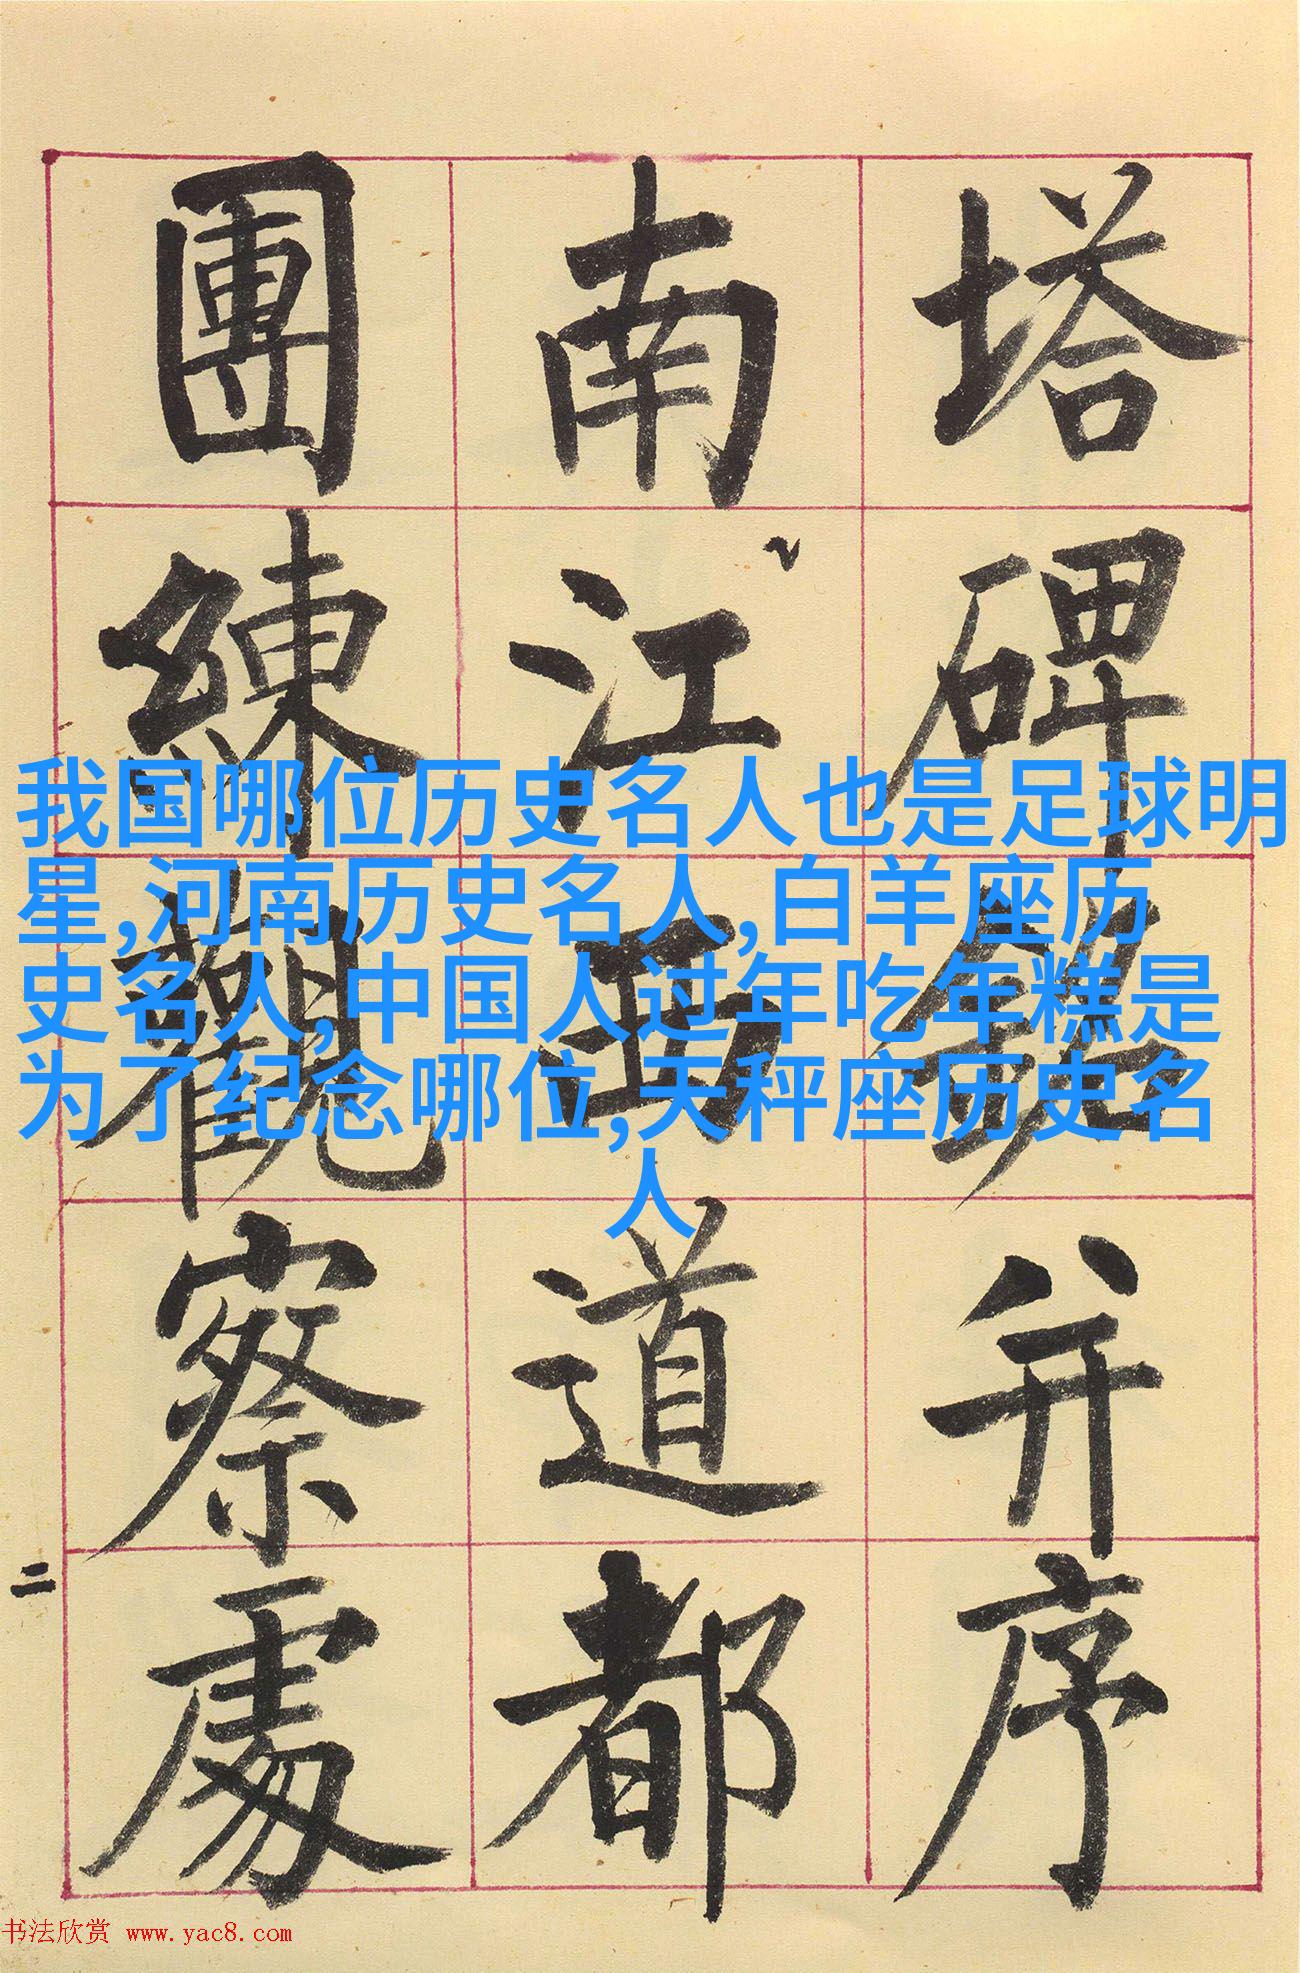 塔碑銘并序
南江西道都
團練觀察處
二
我国哪位历史名人也是足球明
星,河南历史名人,白羊座历
史名人,中国人过年吃年糕是
为了纪念哪位,天秤座历史名
人
书法欣赏 www.yac8.com